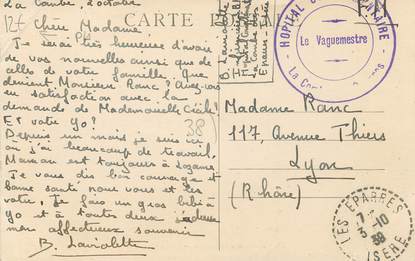 La Combe, 2 octobre
12f Chère Madame
CARTE
Je serais très heureuse d'avoir
de vos nouvelles ainsi que de
celles de votre famille. Que
devient Monsieur Ranc ? Avez-vous
eu satisfaction avec la
demande de Mademoiselle Cécile ?
Et votre Yo ?
Depuis un mois je suis ici
où j'ai beaucoup de travail.
Maman est toujours à
Je vous dis bon courage et
bonne santé pour vous et les
vôtres. Je fais un gros bibi à
Yo et à toutes deux j'adresse
mon affectueux souvenir
B. Laviolette
38)
B. Laviolette
HOPITAL
Le Vaguemestre
Madame Ranc
117, Avenue Thiers
Lyon
(Rhône)
LES EPARRES
3-10
39
ISERE